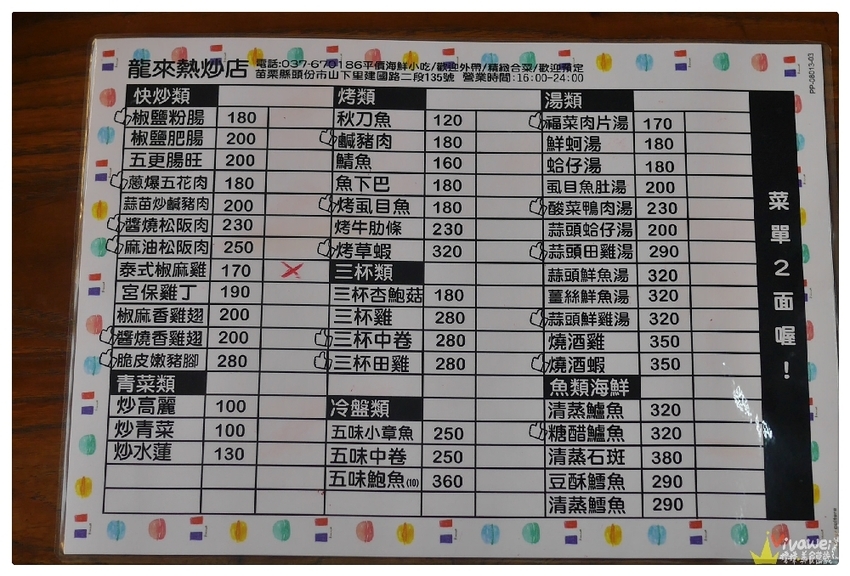 龍來熱炒店 電話:037-670186平價海鮮小吃/歡迎外帶/精緻合菜/歡迎預定
苗栗縣頭份市山下里建國路二段135號 營業時間:16:00-24:00
PP-08013-03
快炒類
椒鹽粉腸 180
椒鹽肥腸 200
五更腸旺 200
蔥爆五花肉 180
蒜苗炒鹹豬肉 200
醬燒松阪肉 230
麻油松阪肉 250
泰式椒麻雞 170
宮保雞丁 190
椒麻香雞翅 200
醬燒香雞翅 200
脆皮嫩豬腳 280
青菜類
炒高麗 100
炒青菜 100
炒水蓮 130
烤類
秋刀魚 120
鹹豬肉 180
鯖魚 160
魚下巴 180
烤虱目魚 180
烤牛肋條 230
烤草蝦 320
三杯類
三杯杏鮑菇 180
三杯雞 280
三杯中卷 280
三杯田雞 280
冷盤類
五味小章魚 250
五味中卷 250
五味鮑魚(10) 360
湯類
福菜肉片湯 170
鮮蚵湯 180
蛤仔湯 180
虱目魚肚湯 200
酸菜鴨肉湯 230
蒜頭蛤仔湯 200
蒜頭田雞湯 290
蒜頭鮮魚湯 320
薑絲鮮魚湯 320
蒜頭鮮雞湯 320
燒酒雞 350
燒酒蝦 350
魚類海鮮
清蒸鱸魚 320
糖醋鱸魚 320
清蒸石斑 380
豆酥鱈魚 290
清蒸鱈魚 290
菜單2面喔！
ivawei